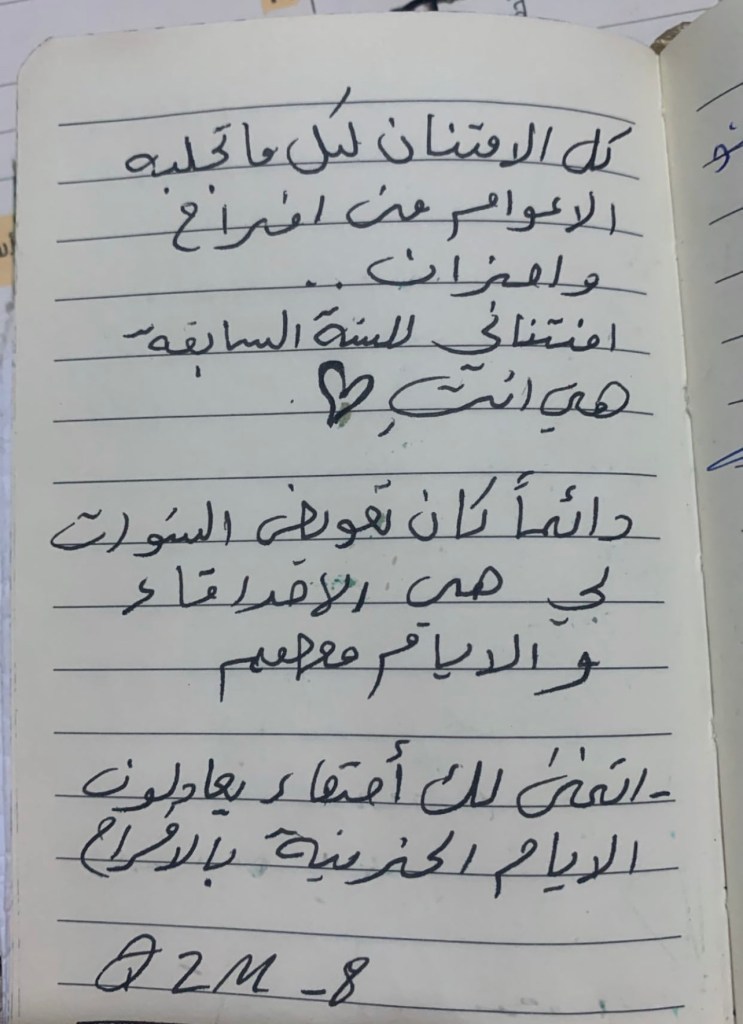 كل الامتنان لكل ما تجلبه
الاعوام من افراح
واحزان ..
امتناني للسنة السابقة
هي انتِ ♡
دائماً كان تعويض السنوات
لي هي الاصدقاء
و الايام معهم
-اتمنى لك أصدقاء يعادلون
الايام الحزينة بالأفراح
2M -8